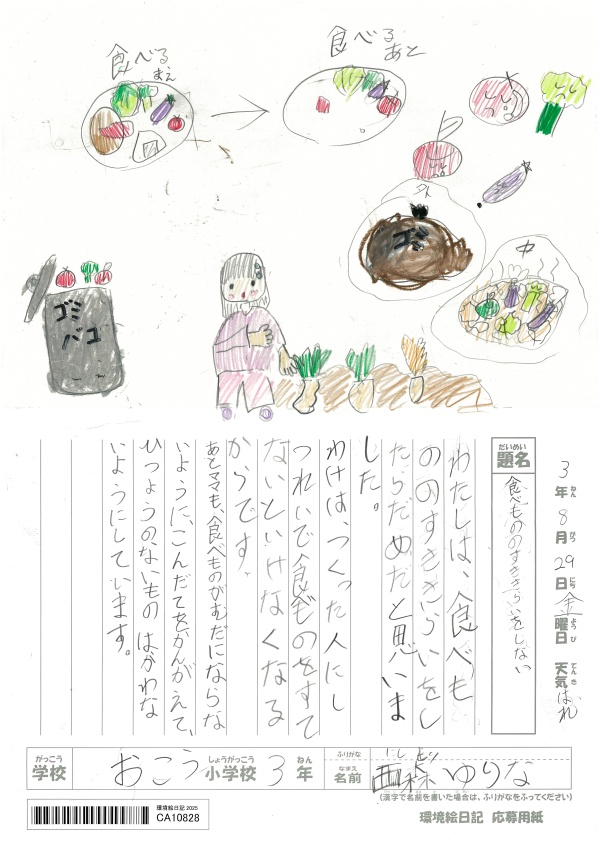 食べる
まえ
食べる
あと
外
ゴミ
中
ゴミ
バコ
3年8月29日金曜日 天気 はれ
ねん がつ にち ようび てんき
だいめい
題名
食べもののすききらいをしない
わたしは、食べも
ののすききらいをし
たらだめだと思いま
した。
わけは、つくった人にし
つれいで食べものをすて
ないといけなくなる
からです。
あとママも、食べものがむだにならな
いように、こんだてをかんがえて、
ひつようのないものはかわな
いようにしています。
がっこう
学校
おこう
しょうがっこう
小学校
3
ねん
年
ふりがな
なまえ
名前
ゆりな
(漢字で名前を書いた場合は、ふりがなをふってください)
環境絵日記 2025
CA10828
環境絵日記 応募用紙